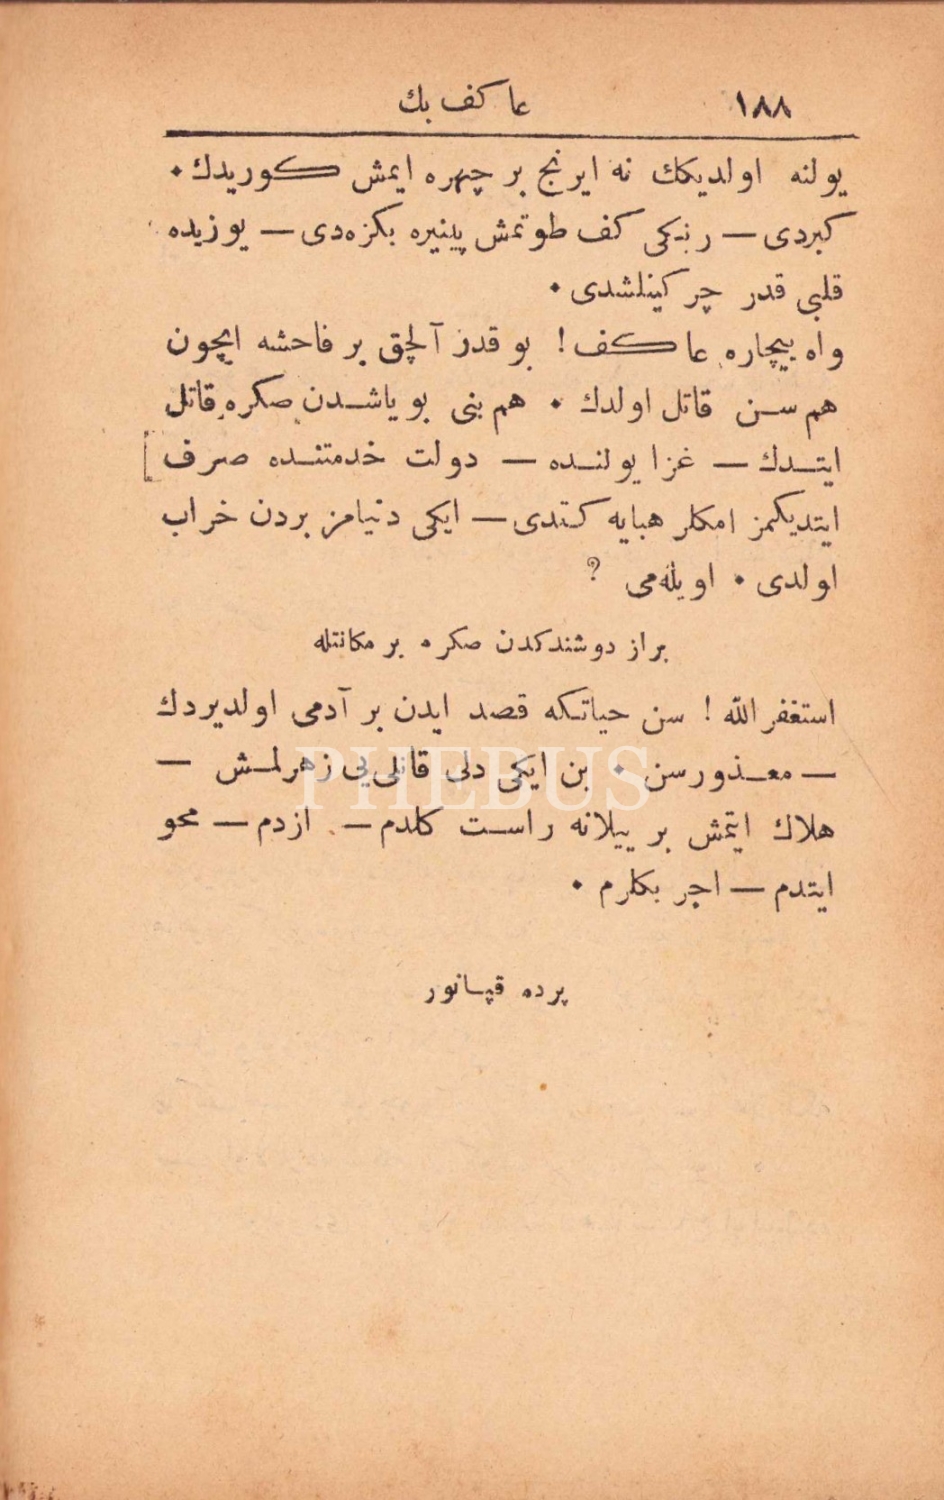 ١٨٨ عاكف بك
يولنه اولديكك نه ايرنج بر چهره ايمش كوريدك .
كبردى — رنكى كف طوتمش پينيره بكزه‌دى — يوزيده
قلبى قدر چركينلشدى .
واه بيچاره عاكف ! بو قدر آلچق بر فاحشه ايچون
هم سن قاتل اولدك . هم بنى بو ياشدن صكره قاتل
ايتدك — غزا يولنده — دولت خدمتنده صرف ]
ايتديكمز امكلر هبايه كتدى — ايكى دنيامز بردن خراب
اولدى . اويله‌مى ?
براز دوشندكدن صكره بر مكانتله
استغفر الله ! سن حياتكه قصد ايدن بر آدمى اولديردك
— معذورسن . بن ايكى دلى قانلى‌يى زهرلمش —
هلاك ايتمش بر ييلانه راست كلدم — ازدم — محو
ايتدم — اجر بكلرم .
پرده قپانور
PHEBUS